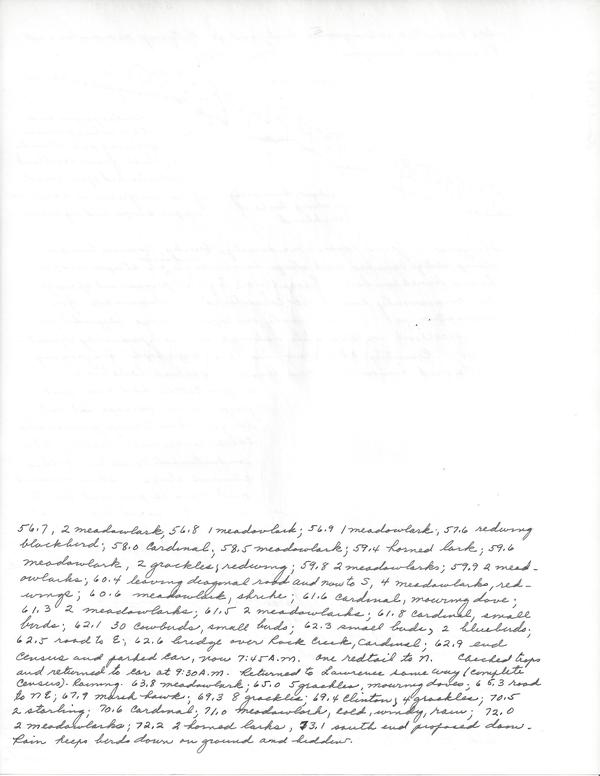 56.7, 2 meadowlark, 56.8 1 meadowlark; 56.9 1 meadowlark, 57.6 redwing
blackbird; 58.0 Cardinal, 58.5 meadowlark; 59.4 horned lark; 59.6
meadowlark, 2 grackles, redwing; 59.8 2 meadowlarks; 59.9 2 mead-
owlarks; 60.4 leaving diagonal road and now to S, 4 meadowlarks, red-
wings; 60.6 meadowlark, shrike; 61.6 Cardinal, mourning dove;
61.3 2 meadowlarks; 61.5 2 meadowlarks; 61.8 Cardinal, small
birds; 62.1 30 Cowbirds, small birds; 62.3 small birds, 2 bluebirds;
62.5 road to E; 62.6 bridge over Rock Creek, Cardinal; 62.9 end
Census and parked car, now 7:45 A.M. One redtail to N. Checked traps
and returned to car at 9:30 A.M. Returned to Lawrence same way (complete
Census). Raining. 63.8 meadowlark; 65.0 5 grackles, mourning doves; 65.3 road
to NE; 67.9 marsh hawk; 69.3 8 grackles; 69.4 Clinton, 4 grackles; 70.5
2 starling; 70.6 Cardinal, 71.0 meadowlark, cold, windy, rain; 72.0
2 meadowlarks; 72.2 2 horned larks, 73.1 south end proposed dam.
Rain keeps birds down on ground and hidden.